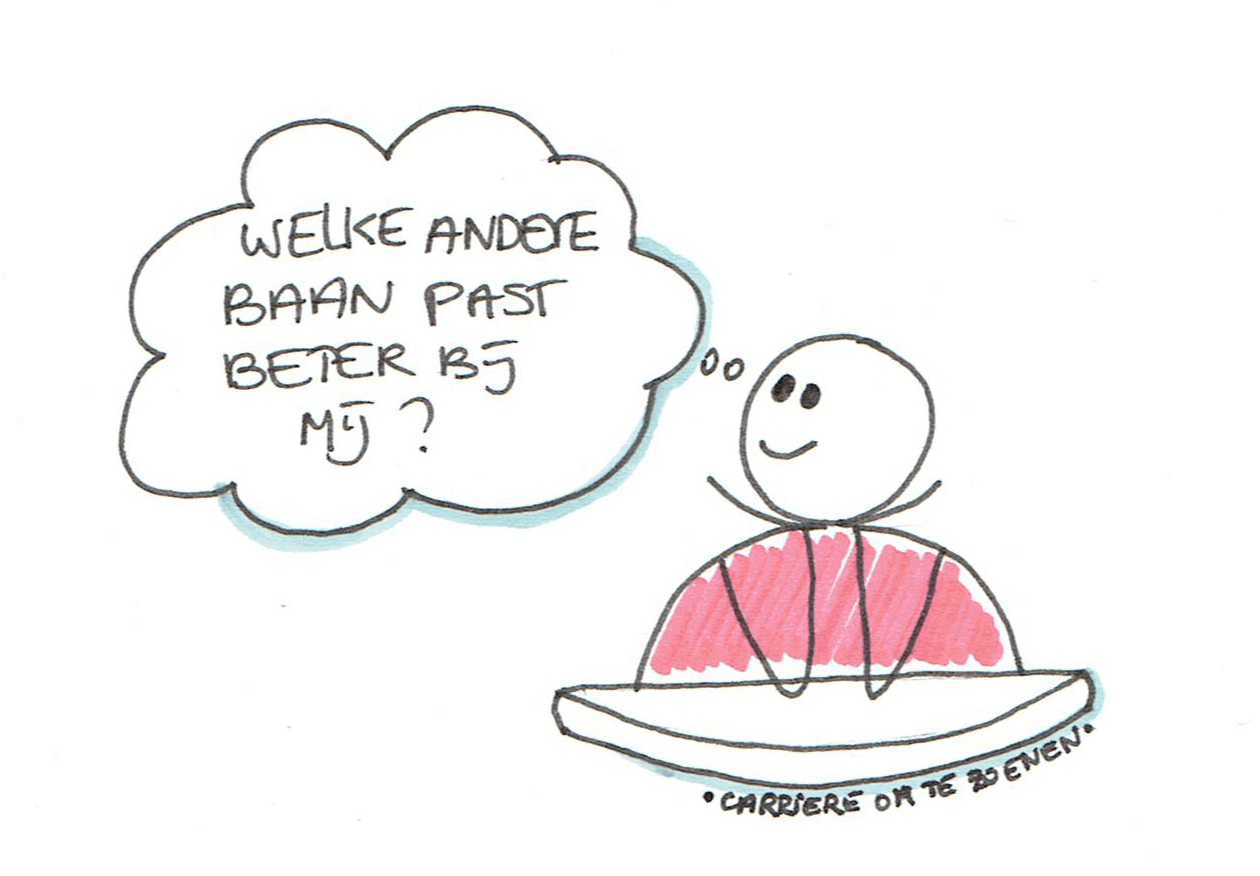 WELKE ANDERE
BAAN PAST
BETER BIJ
MIJ ?
•CARRIERE OM TE ZOENEN•